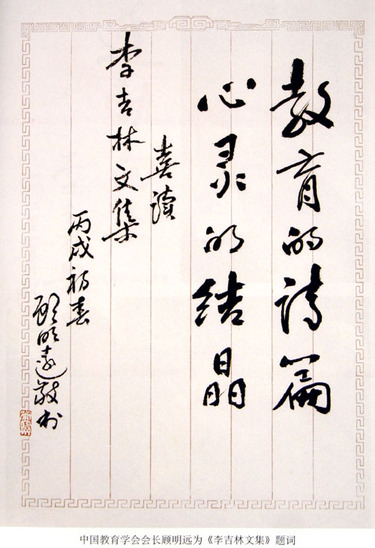 教育的诗篇
心灵的结晶
喜读
李吉林文集
丙戌初春
顾明远敬书
中国教育学会会长顾明远为《李吉林文集》题词